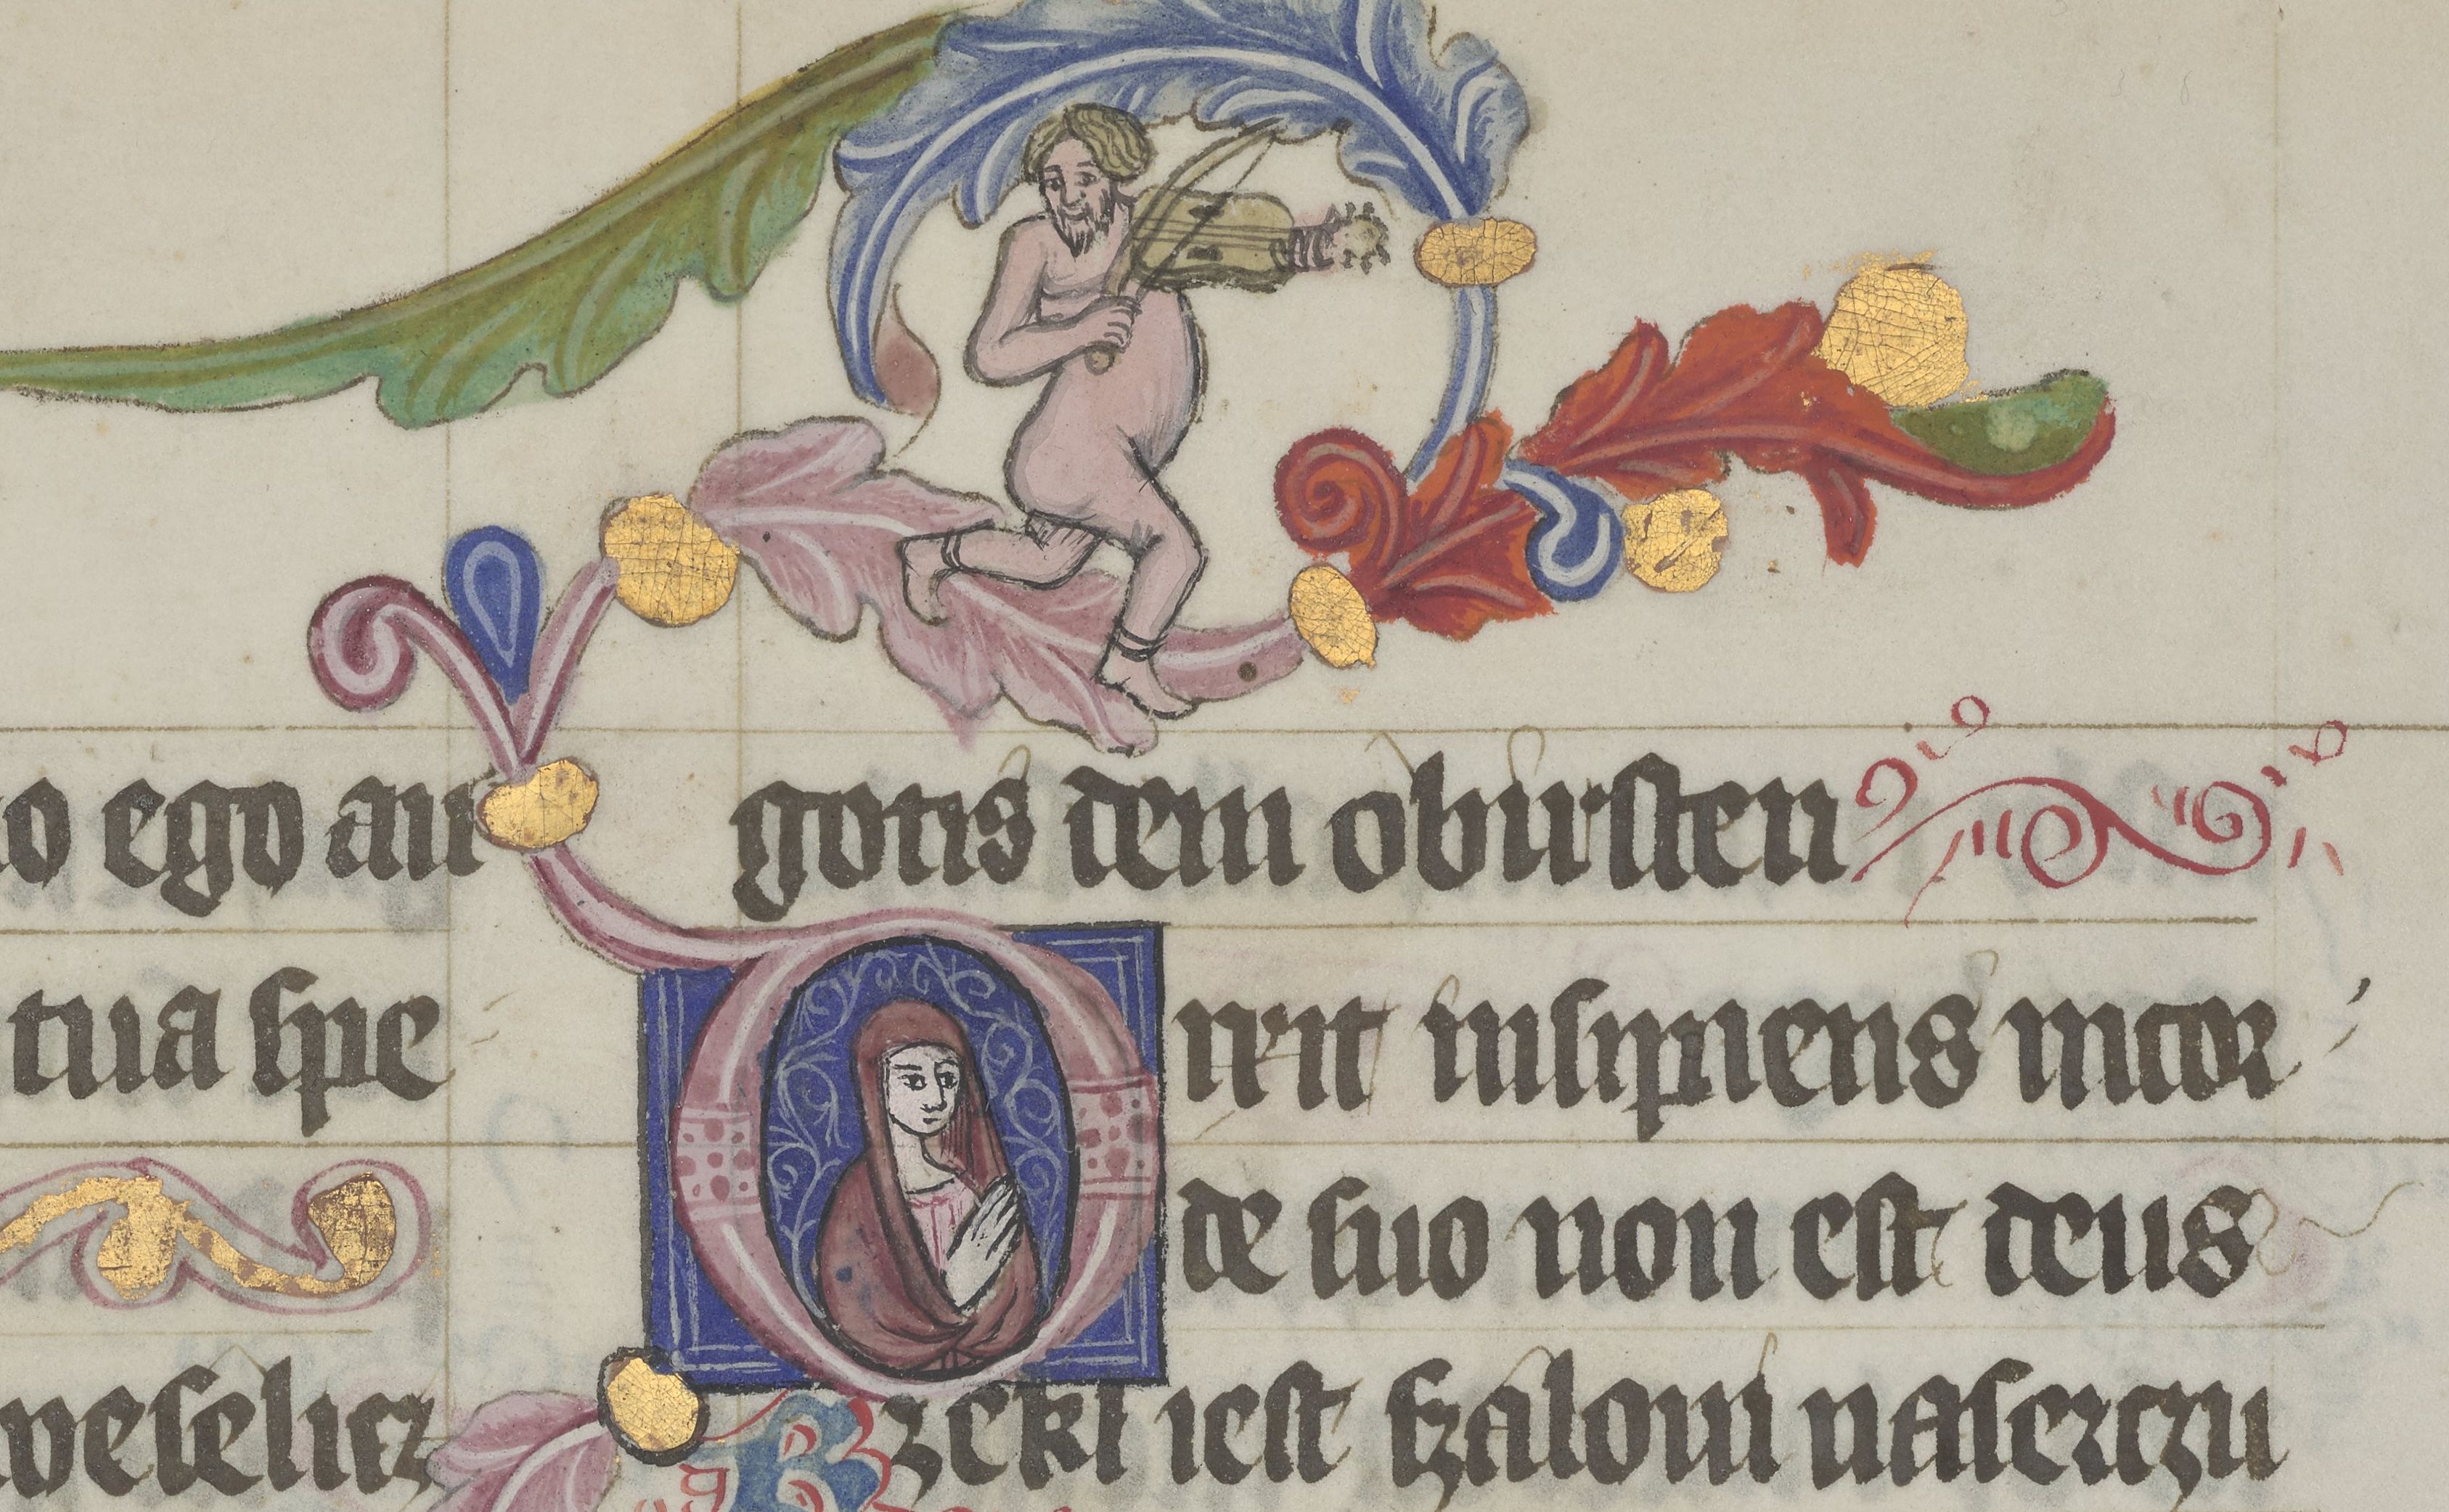 o ego au
tua spe
weselicz
gotis dem obirsten
Dixit insipiens incor
de suo non est deus
Rzekl iest szaloni naserczu